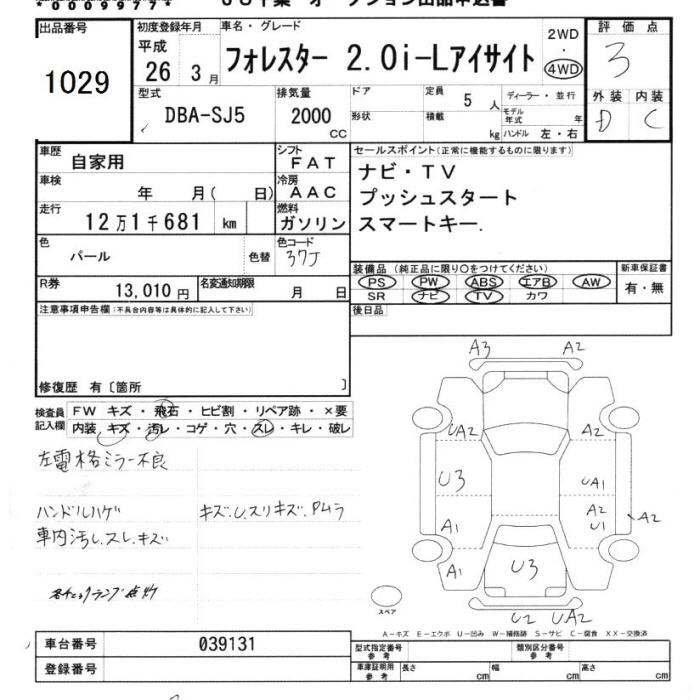 出品番号
1029
初度登録年月
平成
26年 3月
車名・グレード
フォレスター 2.0i-Lアイサイト
2WD
・
4WD
評価点
3
外装 内装
D C
型式
DBA-SJ5
排気量
2000
CC
ドア
形状
定員 5人
積載 kg
ディーラー・並行
モデル年式 年
ハンドル 左・右
車歴
自家用
シフト
FAT
車検
年 月( 日)
冷房
AAC
走行
12万1千681 km
燃料
ガソリン
色
パール
色替
色コード
37J
R券
13,010円
名変通知期限
月 日
セールスポイント(正常に機能するものに限ります)
ナビ・TV
プッシュスタート
スマートキー.
装備品(純正品に限り○をつけてください)
PS PW ABS エアB AW
SR ナビ TV カワ
新車保証書
有・無
後日品
注意事項申告欄(不具合内容等は具体的に記入して下さい)
修復歴 有〔箇所 〕
検査員
記入欄
FW キズ・飛石・ヒビ割・リペア跡・×要
内装・キズ・汚レ・コゲ・穴・スレ・キレ・破レ
左電格ミラー不良
ハンドルハゲ
キズ.U.スリキズ.Pムラ
車内汚し.スレ.キズ
各チェックランプ点灯
A3 A2
UA2 A2
U3 UA1
A2
U1 A2
A1
A1
U3
U2 UA2
スペア
A−キズ E−エクボ U−凹み W−補修跡 S−サビ C−腐食 XX−交換済
車台番号
039131
登録番号
型式指定番号
参考
類別区分番号
参考
車庫証明用
参考
長さ cm
幅 cm
高さ cm